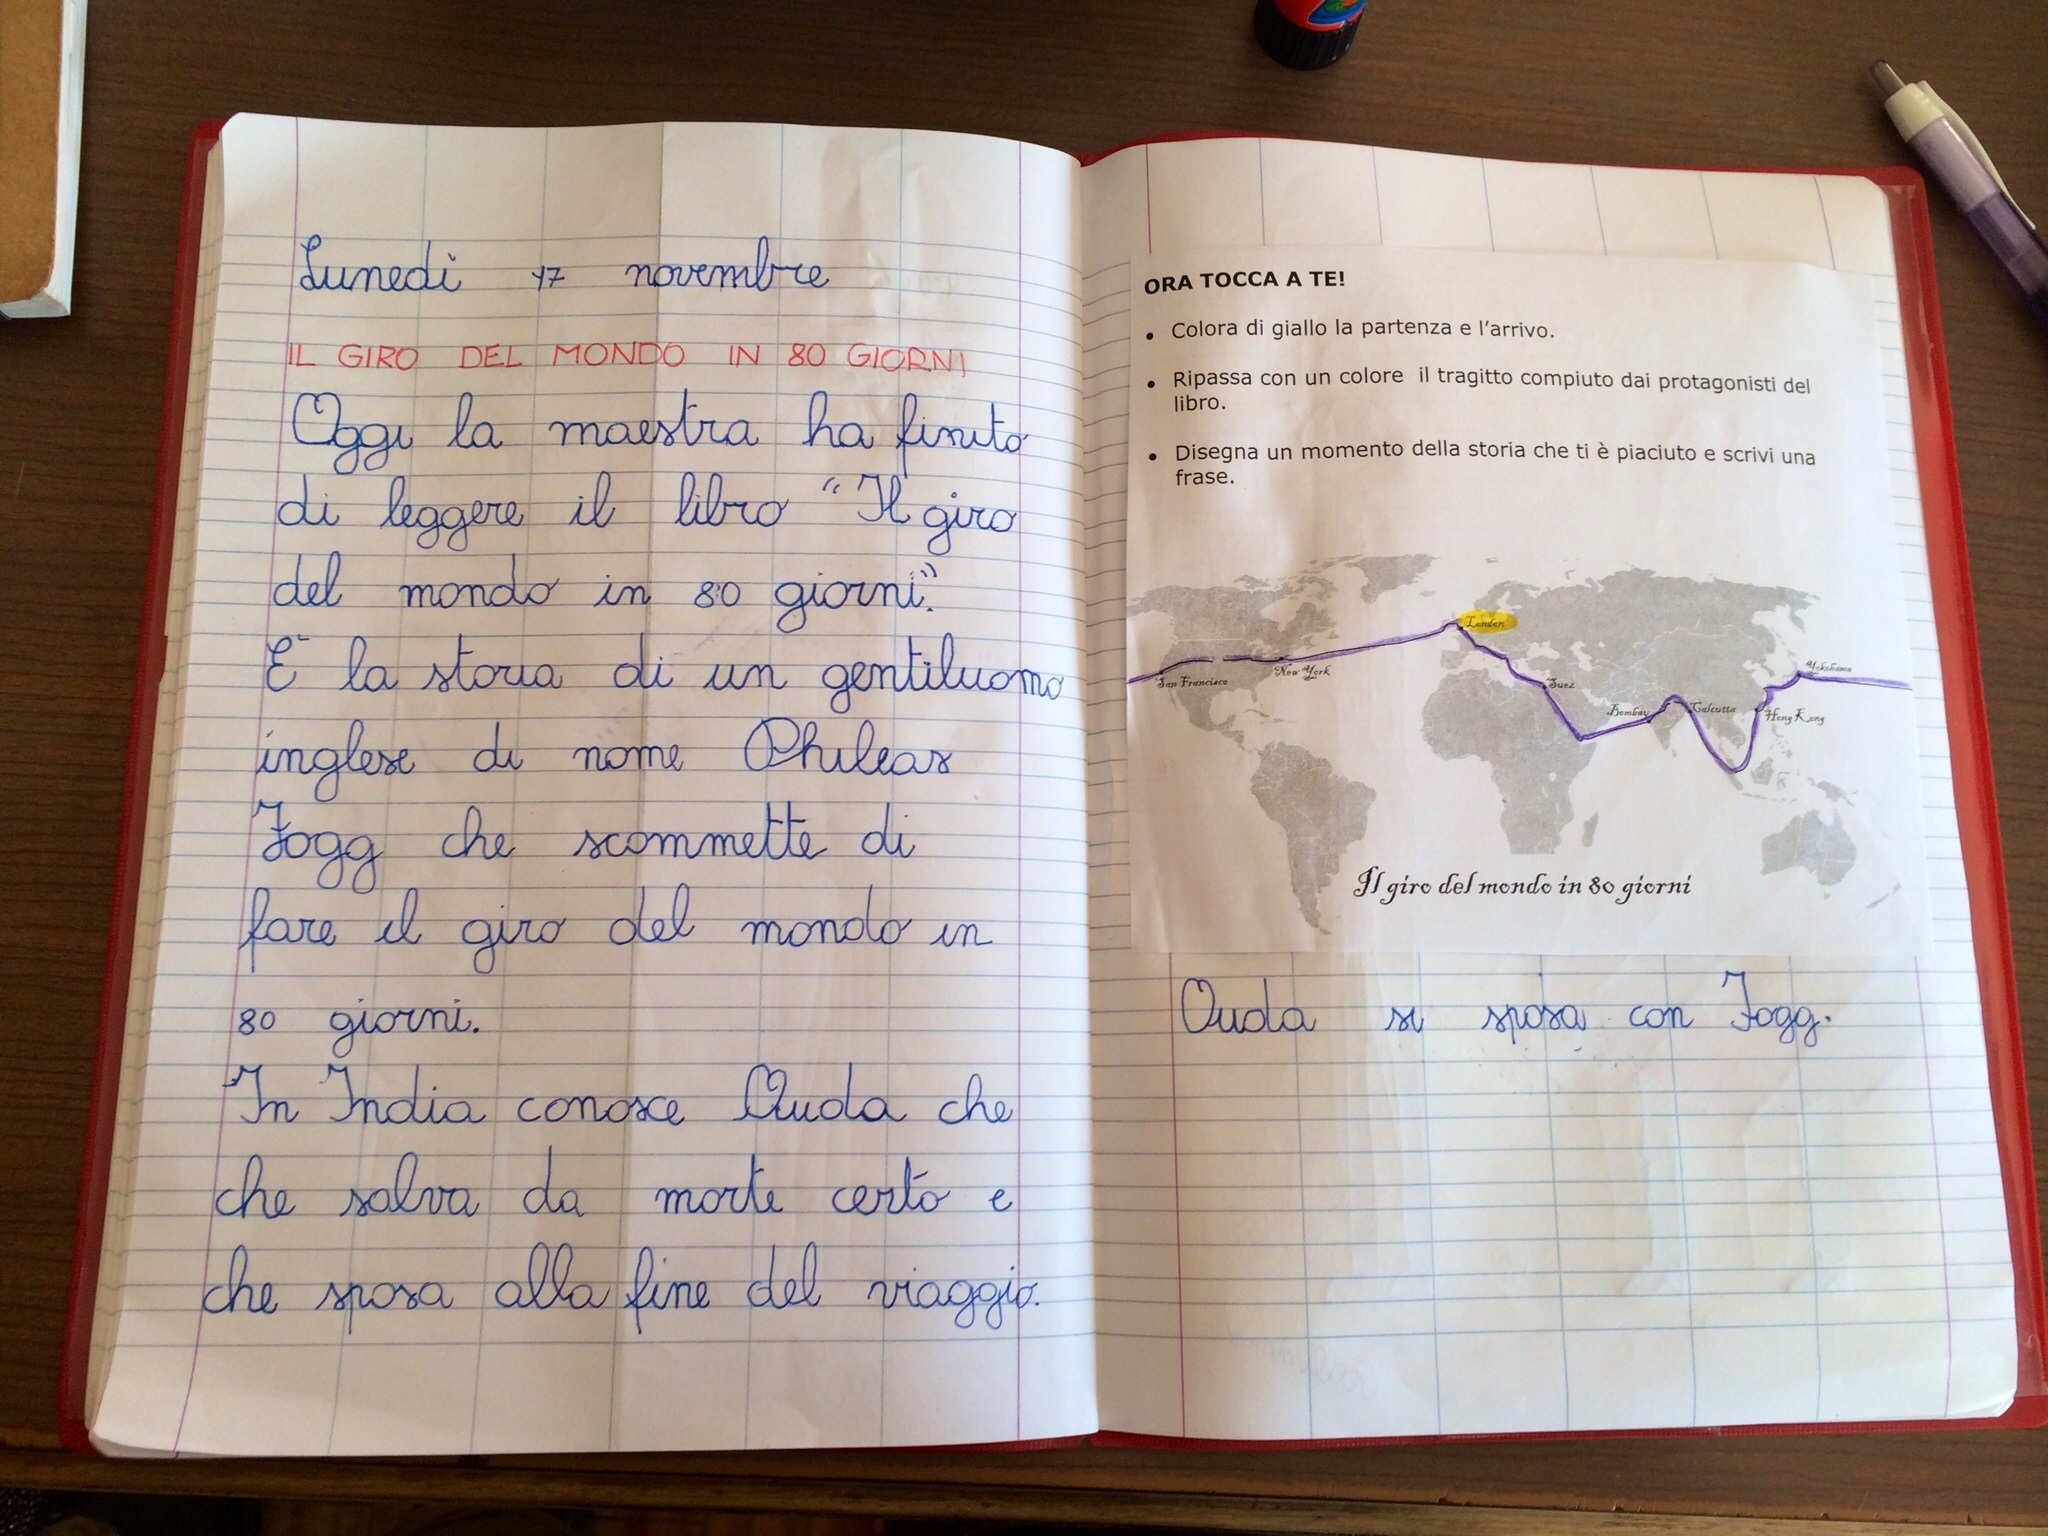 Lunedì 17 novembre
IL GIRO DEL MONDO IN 80 GIORNI
Oggi la maestra ha finito
di leggere il libro “Il giro
del mondo in 80 giorni”.
È la storia di un gentiluomo
inglese di nome Phileas
Fogg che scommette di
fare il giro del mondo in
80 giorni.
In India conosce Auda che
che salva da morte certo e
che sposa alla fine del viaggio.
ORA TOCCA A TE!
• Colora di giallo la partenza e l’arrivo.
• Ripassa con un colore il tragitto compiuto dai protagonisti del
libro.
• Disegna un momento della storia che ti è piaciuto e scrivi una
frase.
London
New York
San Francisco
Suez
Bombay
Calcutta
Hong Kong
Yokohama
Il giro del mondo in 80 giorni
Auda si sposa con Fogg.